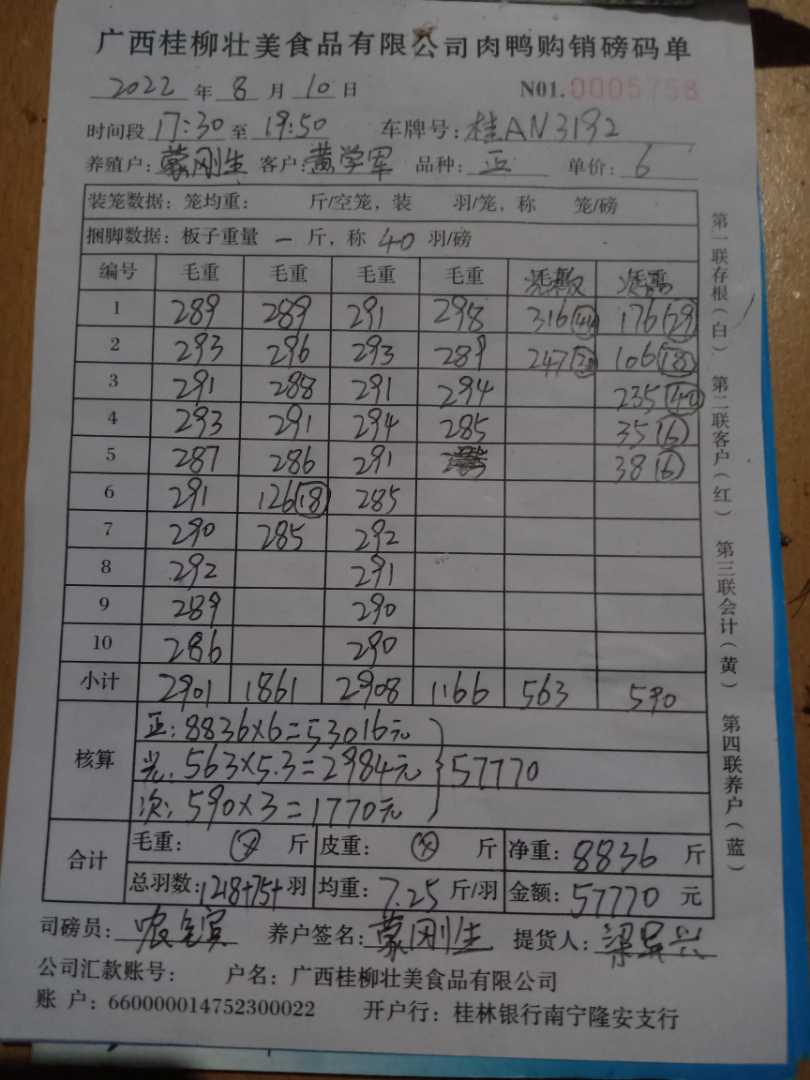 广西桂柳壮美食品有限公司肉鸭购销磅码单
2022 年 8 月 10 日 N01.0005758
时间段 17:30 至 19:50 车牌号: 桂AN3192
养殖户: 蒙刚生 客户: 黄学军 品种: 正 单价: 6
装笼数据: 笼均重: 斤/空笼, 装 羽/笼, 称 笼/磅
捆脚数据: 板子重量 一 斤, 称 40 羽/磅
编号 毛重 毛重 毛重 毛重
1 289 289 291 298 316 176 29
2 293 296 293 289 247 106 18
3 291 288 291 294 235
4 293 291 294 285 35 6
5 287 286 291 38 6
6 291 126 18 285
7 290 285 292
8 292 291
9 289 290
10 286 290
小计 2901 1861 2908 1166 563 590
核算
正: 8836×6=53016元
563×5.3=2984元 57770
次: 590×3=1770元
合计
毛重: 斤 皮重: 斤 净重: 8836 斤
总羽数: 1218+75+ 羽 均重: 7.25 斤/羽 金额: 57770 元
司磅员: 养户签名: 蒙刚生 提货人:
公司汇款账号: 户名: 广西桂柳壮美食品有限公司
账 户: 660000014752300022 开户行: 桂林银行南宁隆安支行
第一联存根(白) 第二联客户(红) 第三联会计(黄) 第四联养户(蓝)